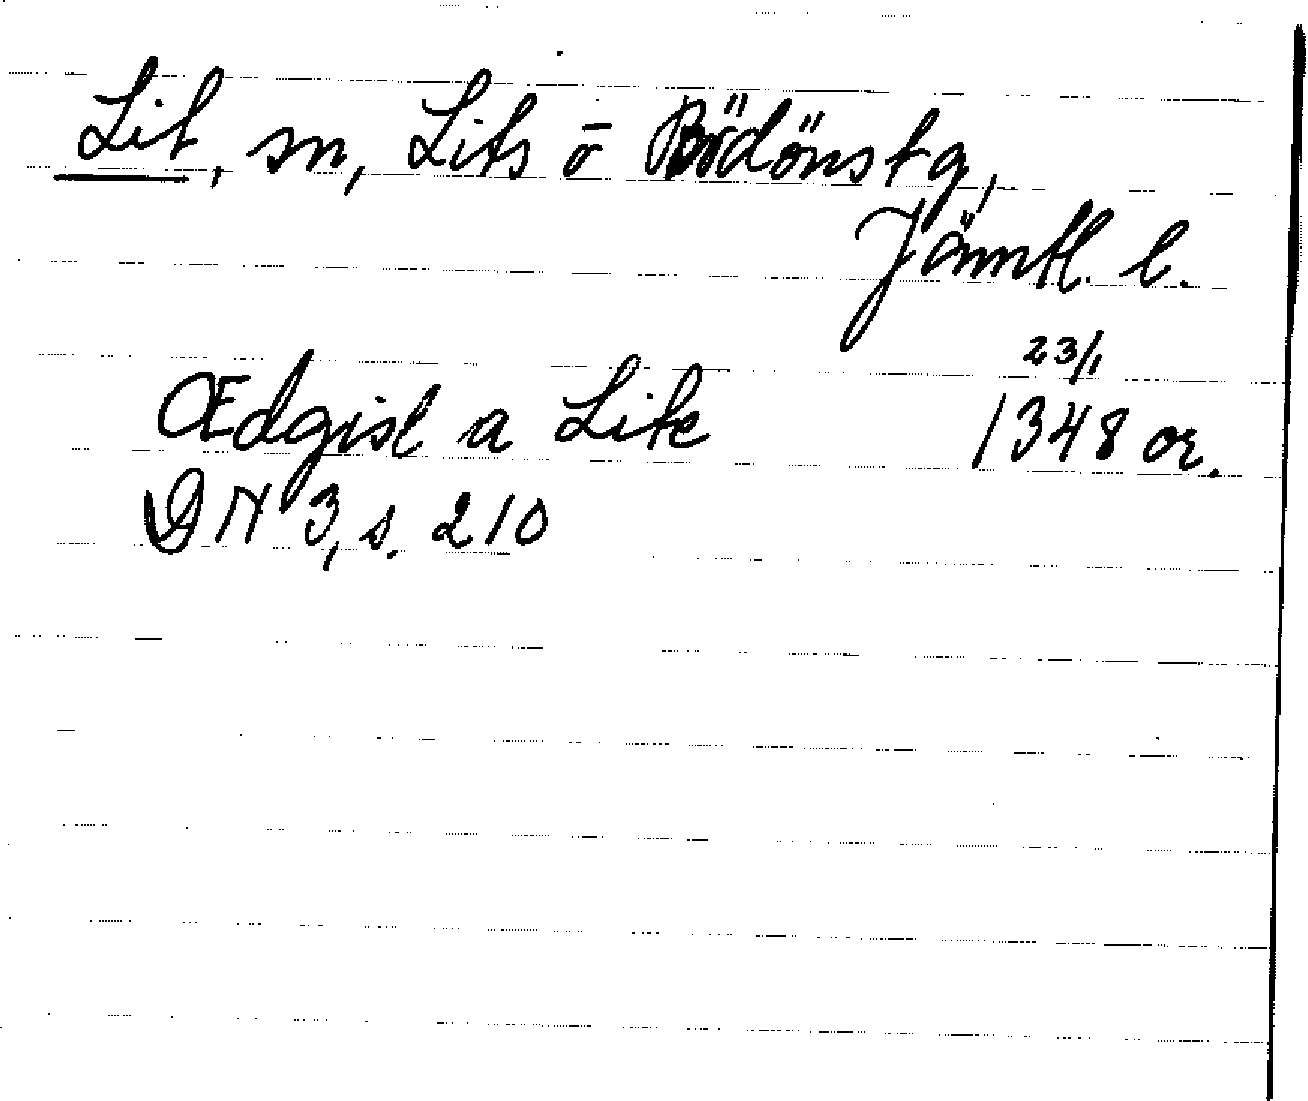 Lit, sn, Lits o Rödöns tg,
Jämtl. l.
23/1
Ædgisl a Lite 1348 or.
DN 3, s. 210